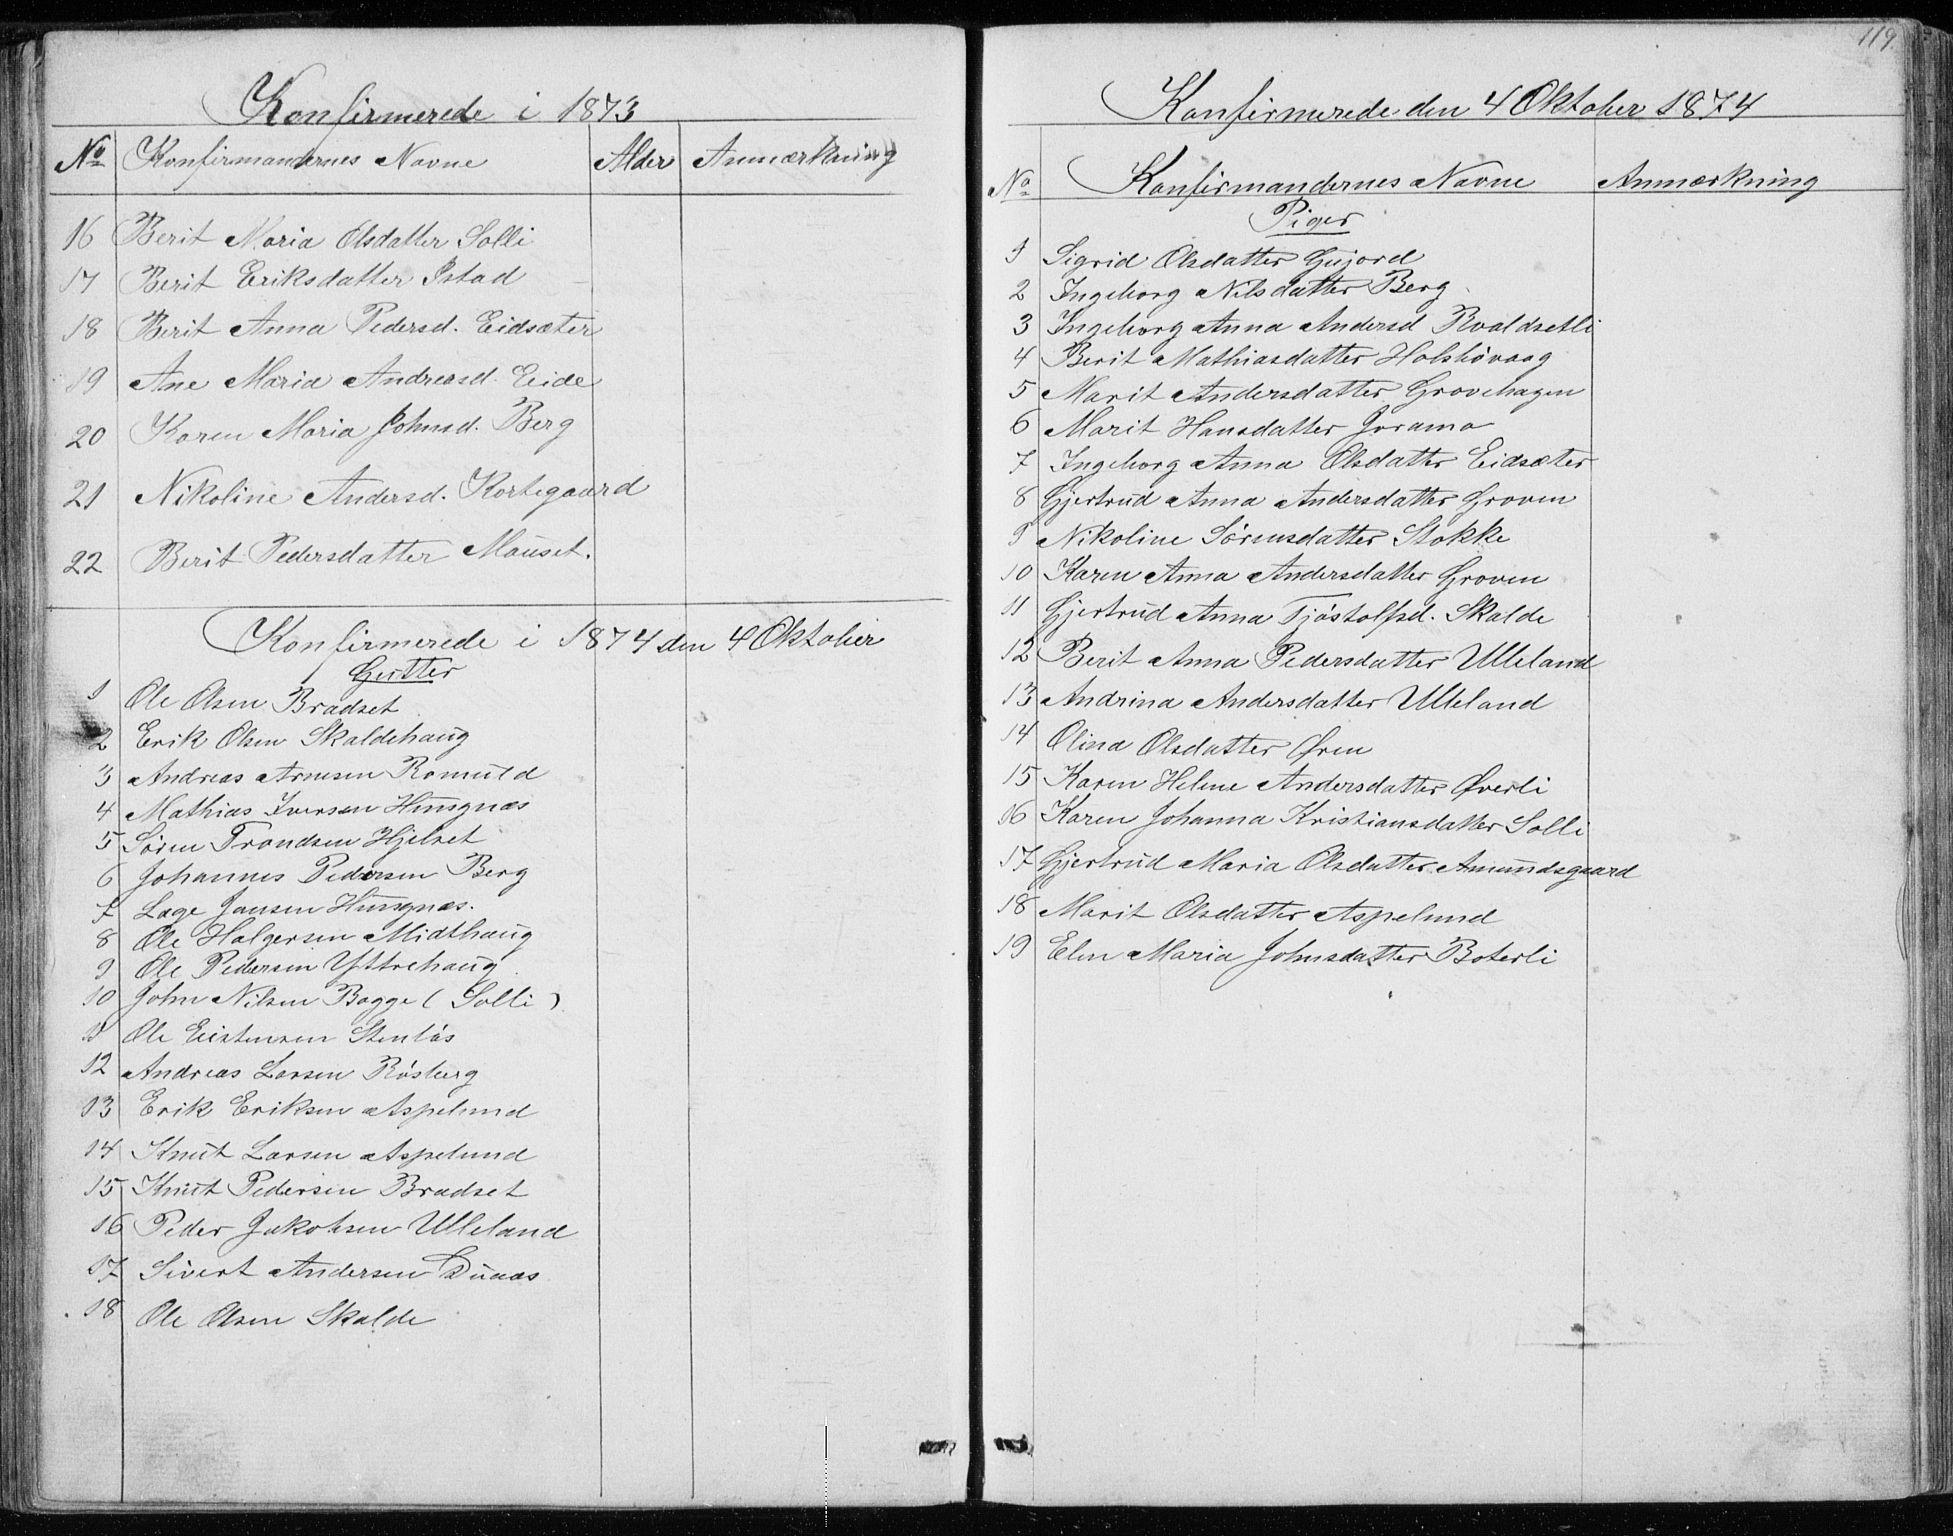 Konfirmerede i 1873
No Konfirmandernes Navne Alder Anmærkning
16 Berit Maria Olsdatter Solli
17 Berit Eriksdatter Istad
18 Berit Anna Pedersd. Eidsæter
19 Ane Maria Andreasd. Eide
20 Karen Maria Johnsd. Berg
21 Nikoline Andersd. Kortegaard
22 Berit Pedersdatter Mauset.
Konfirmerede i 1874 den 4 Oktober
Gutter
1 Ole Olsen Bradset
2 Erik Olsen Skaldehaug
3 Andreas Arnesen Romuld
4 Mathias Iversen Husgnæs
5 Sören Trondsen Hjelset
6 Johannes Pedersen Berg
7 Lage Jansen Husgnæs.
8 Ole Holgersen Midthaug
9 Ole Pedersen Yttrehaug
10 John Nilsen Bagge (Solli)
11 Ole Eistensen Stenlös
12 Andreas Larsen Rösberg
13 Erik Eriksen Aspelund
14 Knut Larsen Aspelund
15 Knut Pedersen Bradset
16 Peder Jakobsen Ulleland
17 Sivert Andersen
18 Ole Olsen Skalde
119.
Konfirmerede den 4 Oktober 1874
No Konfirmandernes Navne Anmærkning
Piger
1 Sigrid Olsdatter Gujord
2 Ingeborg Nilsdatter Berg
3 Ingeborg Anna Andersd Roaldsetli
4 Berit Mathiasdatter Holshövaag
5 Marit Andersdatter Grovehagen
6 Marit Hansdatter Joramo
7 Ingeborg Anna Olsdatter Eidsæter
8 Gjertrud Anna Andersdatter Groven
9 Nikoline Sörensdatter Stokke
10 Karen Anna Andersdatter Groven
11 Gjertrud Anna Tjöstolfsd. Skalde
12 Berit Anna Pedersdatter Ulleland
13 Andrina Andersdatter Ulleland
14 Olina Olsdatter Øren
15 Karen Helene Andersdatter Øverli
16 Karen Johanna Kristiansdatter Solli
17 Gjertrud Maria Olsdatter Amundsgaard
18 Marit Olsdatter Aspelund
19 Elen Maria Johnsdatter Boterli